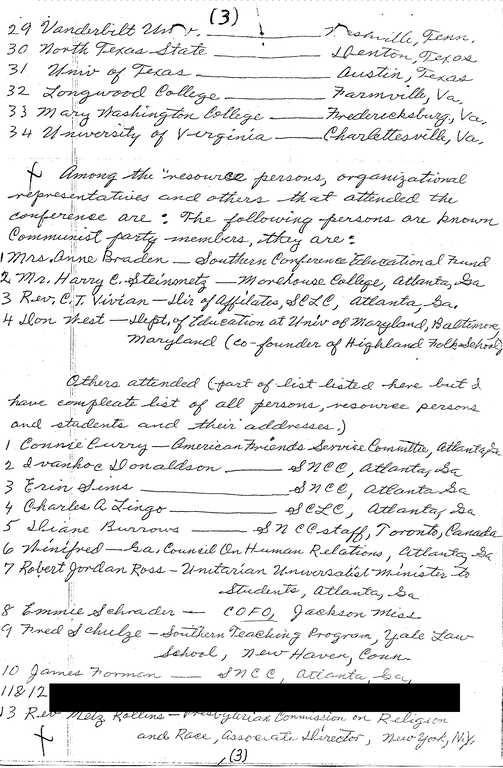 (3)
29 Vanderbilt Univ. — Nashville, Tenn.
30 North Texas State — Denton, Texas
31 Univ of Texas — Austin, Texas
32 Longwood College — Farmville, Va.
33 Mary Washington College — Fredericksburg, Va.
34 University of Virginia — Charlettesville, Va.
Among the "resource persons, organizational
representatives and others that attended the
conference are: The following persons are known
Communist party members, they are:
1 Mrs. Anne Braden — Southern Conference Educational Fund
2 Mr. Harry C. Steinmetz — Morehouse College, Atlanta, Ga
3 Rev. C.T. Vivian — Dir of Affilates, SCLC, Atlanta, Ga.
4 Don West — Dept. of Education at Univ of Maryland, Baltimore,
Maryland (co-founder of Highland Folk School)
Others attended (part of list listed here but I
have compleate list of all persons, resource persons
and students and their addresses.)
1 Connie Curry — American Friends Service Committee, Atlanta, Ga
2 Ivanhoe Donaldson — SNCC, Atlanta, Ga
3 Erin Sims — SNCC, Atlanta Ga
4 Charles A Lingo — SCLC, Atlanta, Ga
5 Diane Burrows — SNCC staff, Toronto, Canada
6 Winifred — Ga. Council On Human Relations, Atlanta, Ga
7 Robert Jordan Ross — Unitarian Universalist Minister to
Students, Atlanta, Ga
8 Emmie Schrader — COFO, Jackson Miss
9 Fred Schulze — Southern Teaching Program, Yale Law
School, New Haven, Conn.
10 James Forman — SNCC, Atlanta, Ga,
11 & 12
13 Rev Metz Rollins — Presbyterian Commission on Religion
and Race, Associate Director, New York, N.Y.
(3)